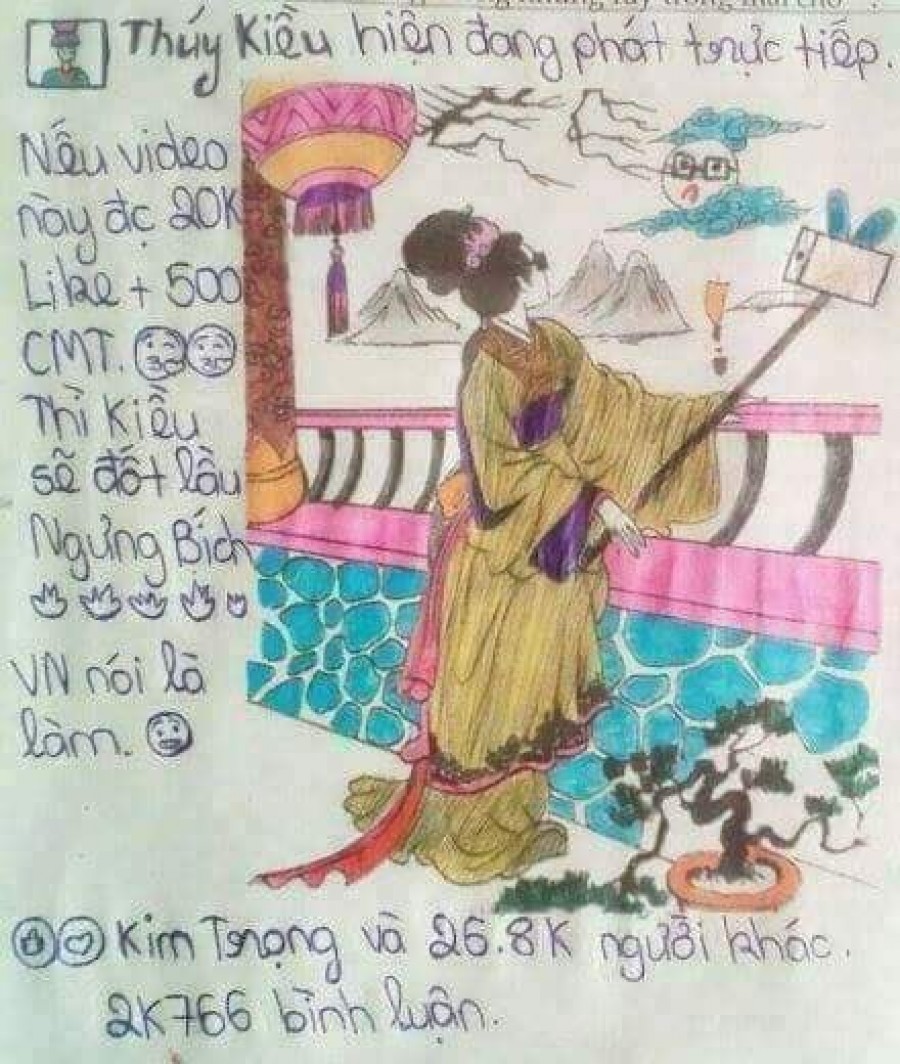 Thúy Kiều hiện đang phát trực tiếp.
Nếu video
này đc 20K
Like + 500
CMT.
Thì Kiều
sẽ đốt lầu
Ngưng Bích
VN nói là
làm.
Kim Trọng và 26.8K người khác.
2K766 bình luận.